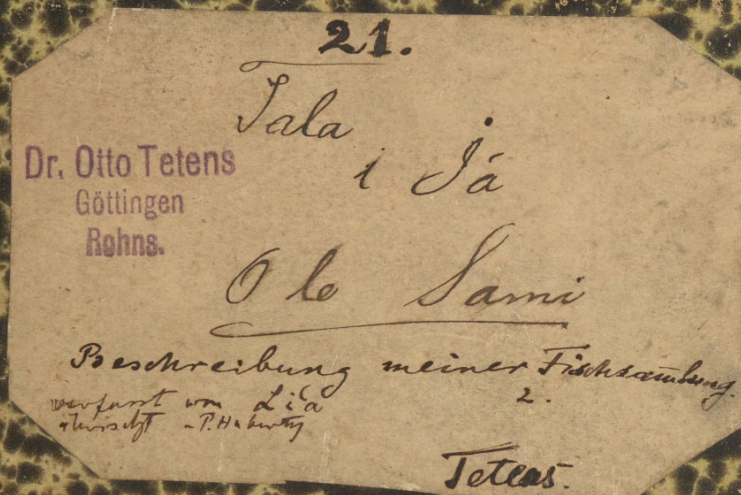 21.
Tala
i Já
Dr. Otto Tetens
Göttingen
Rohns.
O le Sami
Beschreibung meiner Fischsammlung.
2.
verfasst von Lia
Tetens.